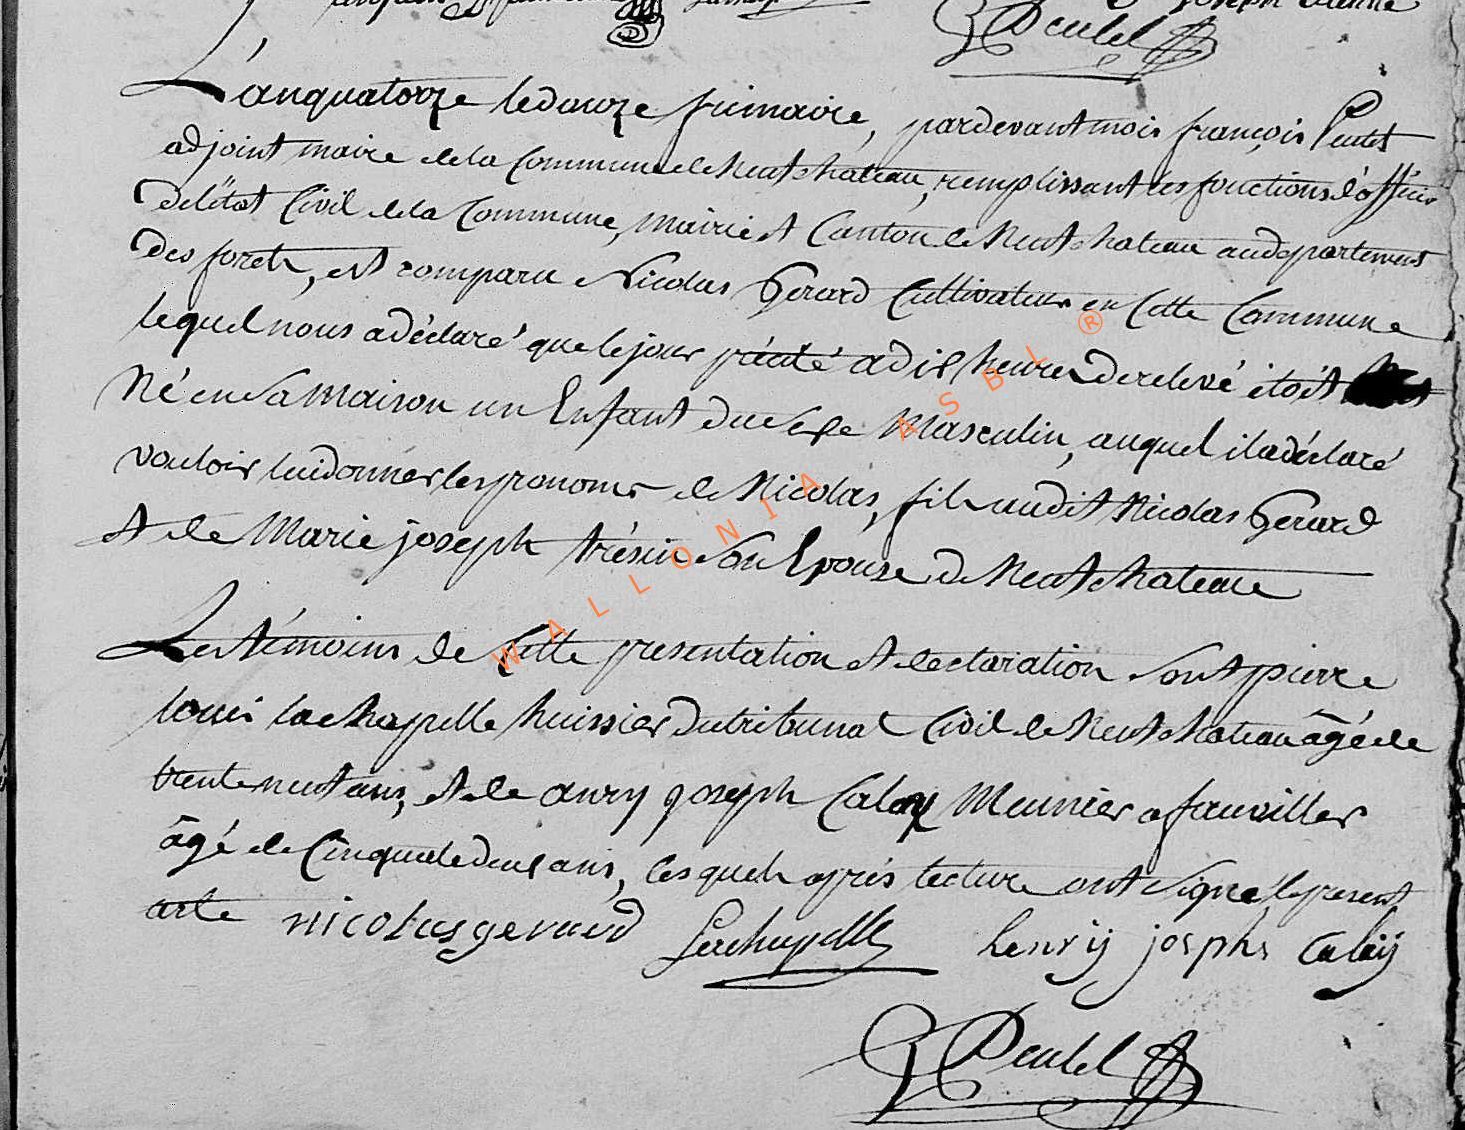 joseph
Deulel
L'an quatorze le douze frimaire, pardevant mois françois
adjoint maire de la Commune de Neufchateau, remplissant les fonctions d'officier
de l'état Civil de la Commune, mairie et Canton de Neufchateau au departement
des forets, est comparu Nicolas Gerard Cultivateur en Cette Commune
lequel nous a déclaré que le jour a dix heures de relevé étoit
Né en sa maison un Enfant du sexe Masculin, auquel il a déclaré
vouloir lui donner les pronoms de Nicolas, fils audit Nicolas Gérard
et de Marie joseph trésin son Epouse de Neufchateau
Les témoins de Cette presentation et declaration sont pierre
louis lachapelle huissier du tribunal Civil de Neufchateau âgé de
trente neuf ans, et de anry joseph Calay Meunier a fauviller
âgé de Cinquante deux ans, lesquels après lecture ont signé le present
acte nicolas gerard Lachapelle henrij josphs calaij
Deulel
WALLONIA ASBL ®